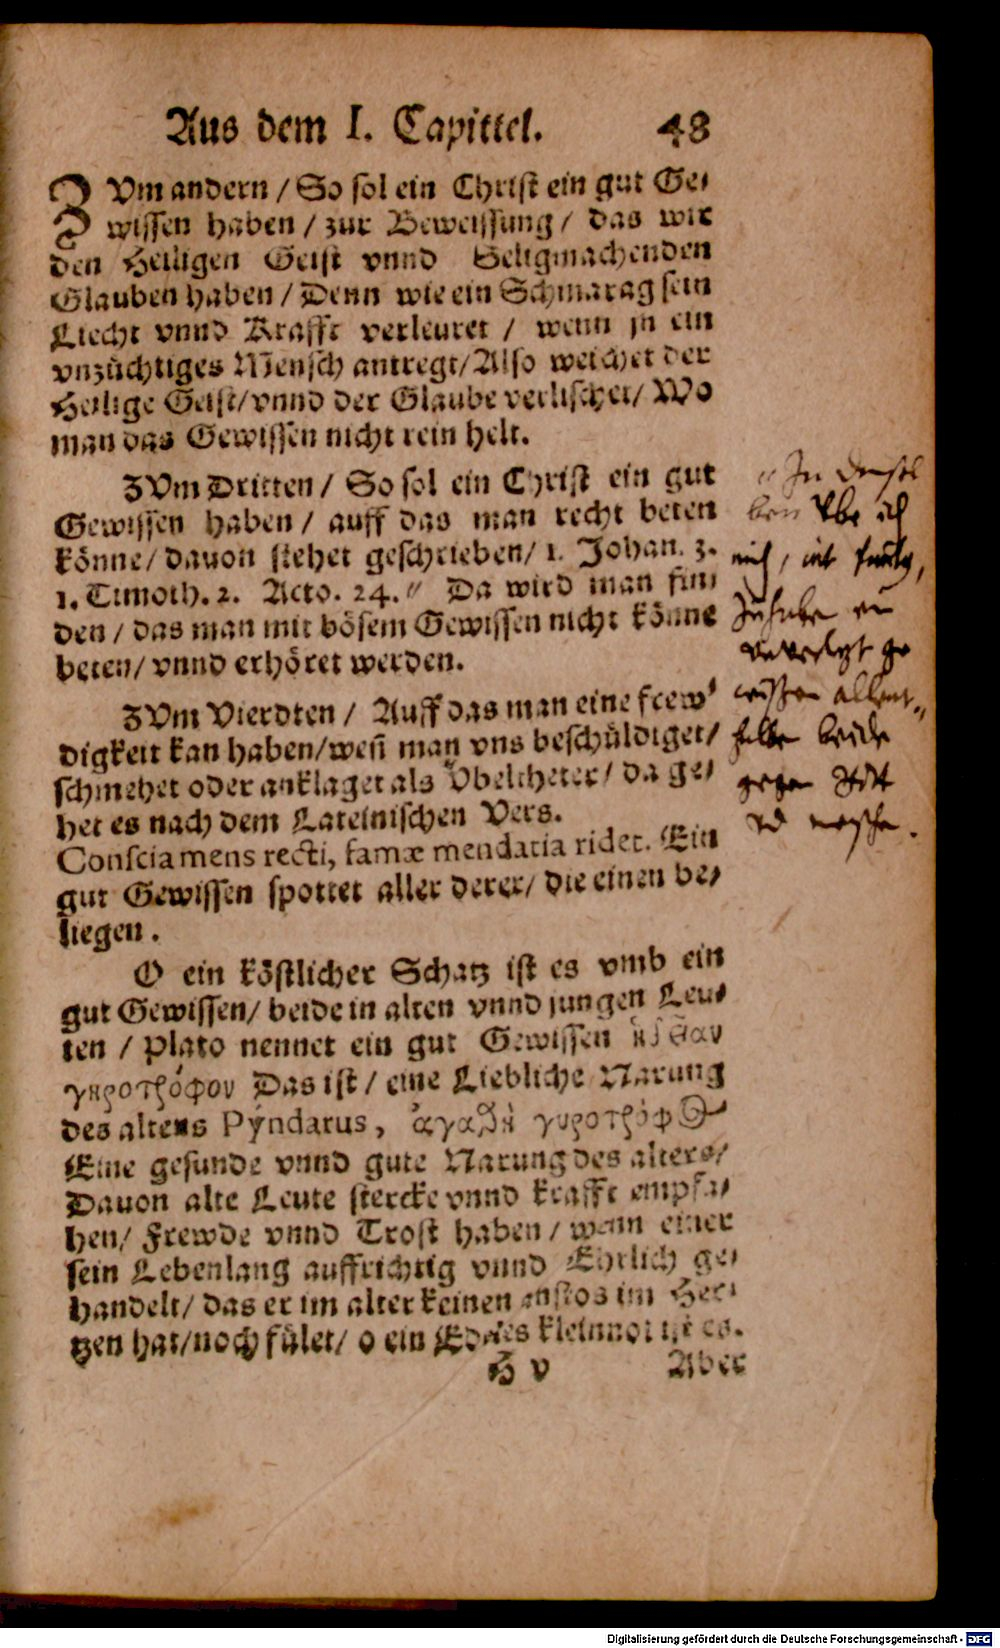 Aus dem I. Capittel. 48
ZVm andern / So sol ein Christ ein gut Ge-
wissen haben / zur Beweissung / das wir
den Heiligen Geist vnnd Seligmachenden
Glauben haben / Denn wie ein Schmarag sein
Liecht vnnd Krafft verleuret / wenn jn ein
vnzüchtiges Mensch antregt / Also weichet der
Heilige Geist / vnnd der Glaube verlischet / Wo
man das Gewissen nicht rein helt.
ZVm Dritten / So sol ein Christ ein gut
Gewissen haben / auff das man recht beten
könne / dauon stehet geschrieben / 1. Johan. 3.
1. Timoth. 2. Acto. 24. " Da wird man fin-
den / das man mit bösem Gewissen nicht könne
beten / vnnd erhöret werden.
ZVm Vierdten / Auff das man eine frew-
digkeit kan haben / weñ man vns beschüldiget /
schmehet oder anklaget als Vbeltheter / da ge-
het es nach dem Lateinischen Vers.
Conscia mens recti, famæ mendatia ridet. Ein
gut Gewissen spottet aller derer / die einen be-
liegen.
O ein köstlicher Schatz ist es vmb ein
gut Gewissen / beide in alten vnnd jungen Leu-
ten / Plato nennet ein gut Gewissen
γηροτρόφον Das ist / eine Liebliche Narung
des alters Pyndarus, ἀγαθὴ γυροτρόφος
Eine gesunde vnnd gute Narung des alters /
Dauon alte Leute stercke vnnd krafft empfa-
hen / Frewde vnnd Trost haben / wenn einer
sein Lebenlang auffrichtig vnnd Ehrlich ge-
handelt / das er im alter keinen anstos im Her-
tzen hat / noch fület / o ein Edeles kleinnot ist es.
H v Aber
" In demsel
ben Vbe ich
mich,
Zuhabe ein
vnverletzt ge
wissen allent"
halbe beide
gegen Gott
vnd mensche.
Digitalisierung gefördert durch die Deutsche Forschungsgemeinschaft - DFG